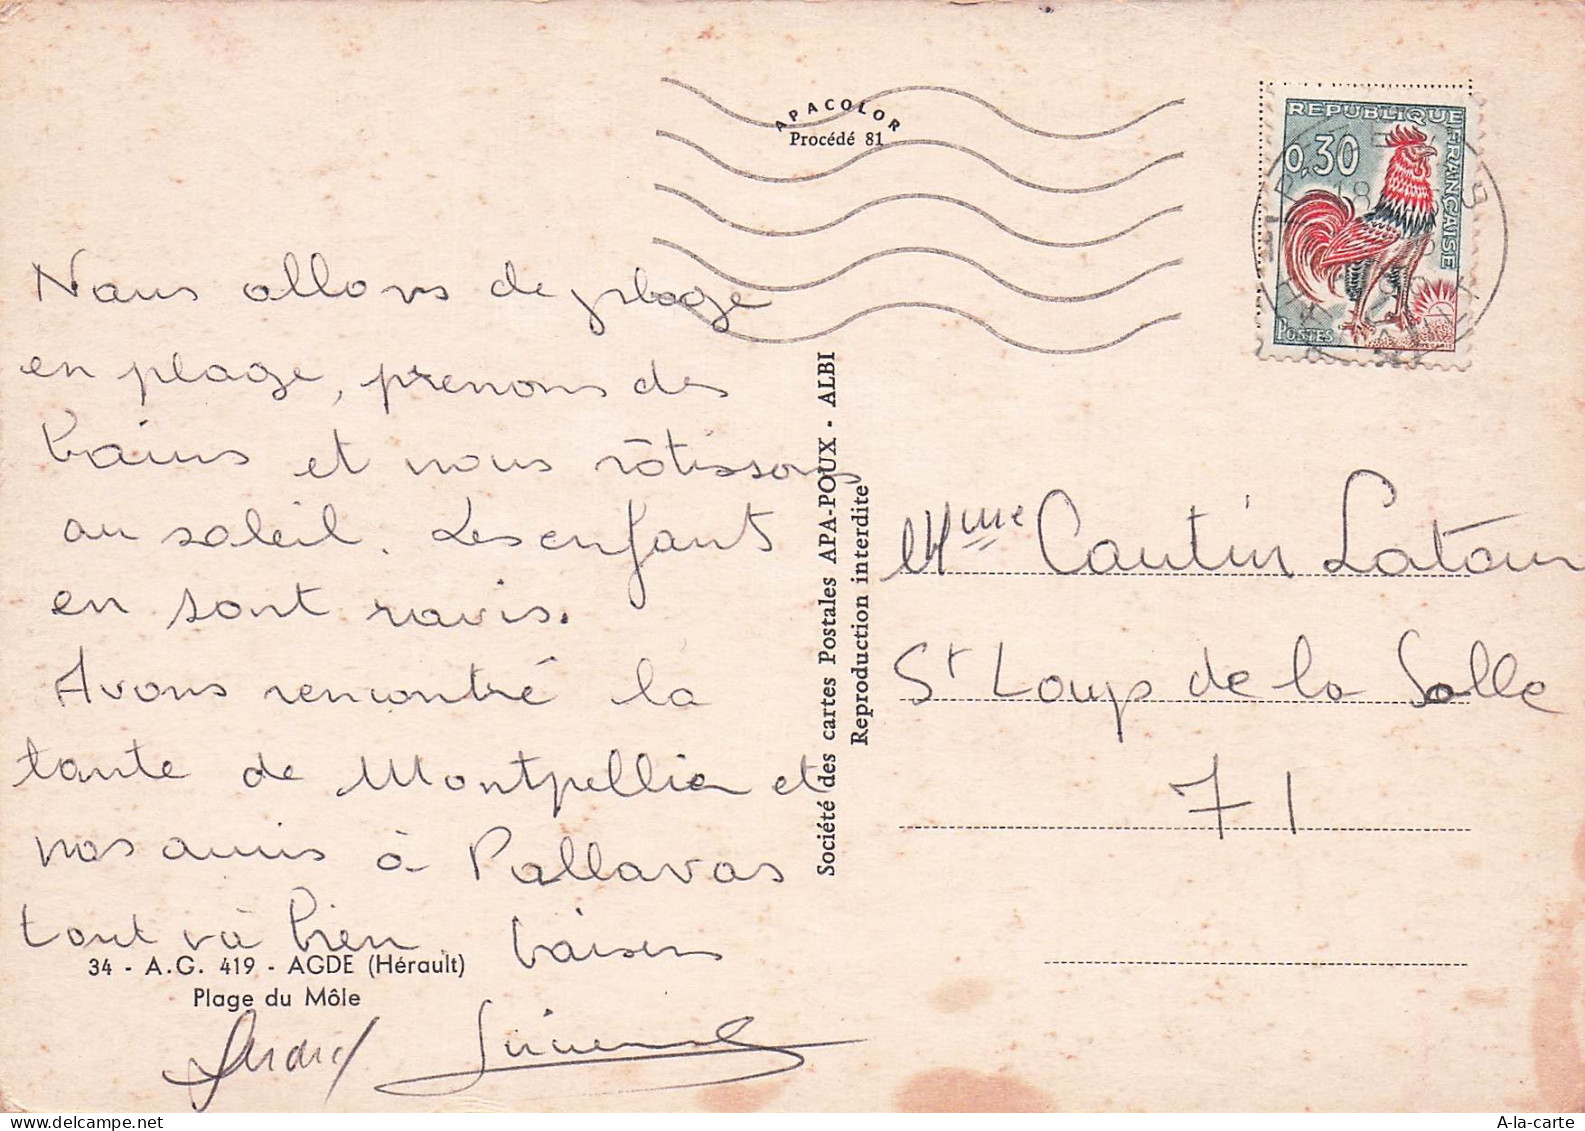 APACOLOR
Procédé 81
REPUBLIQUE FRANÇAISE
0,30
18
POSTES
Nous allons de plage
en plage, prenons des
bains et nous rôtissons
au soleil. Les enfants
en sont ravis.
Avons rencontré la
tante de Montpellier et
nos amis à Pallavas
tout va bien baisers
34 - A.G. 419 - AGDE (Hérault)
Plage du Môle
Gérard
Société des cartes Postales APA-POUX - ALBI
Reproduction interdite
Mme Cautin Latour
St Loup de la Salle
71
A-la-carte